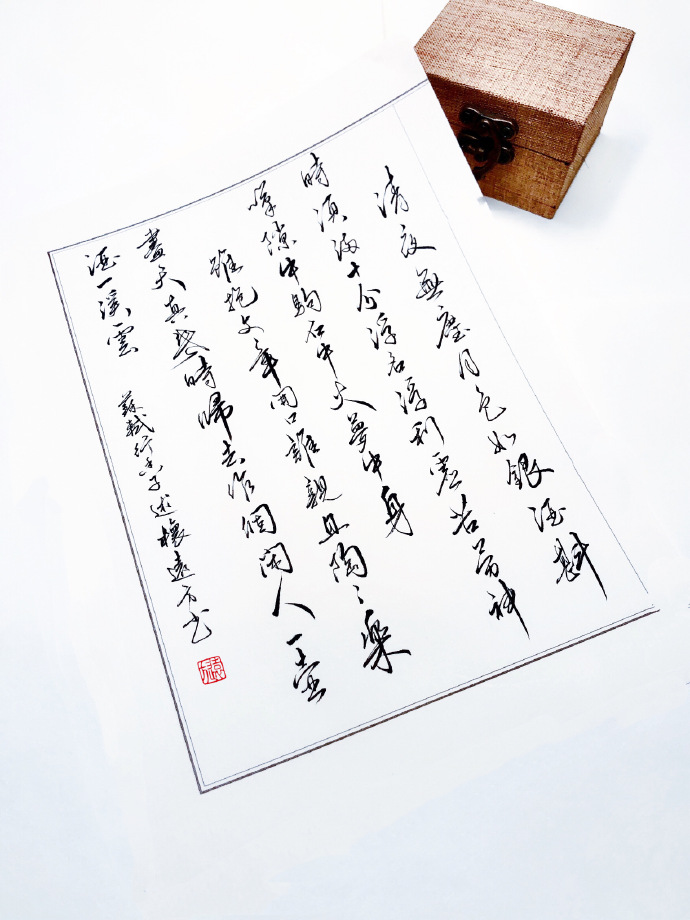 清夜無塵月色如銀酒斟
時須滿十分浮名浮利虛苦勞神
嘆隙中駒石中火夢中身
雖抱文章開口誰親且陶〻樂
盡天真幾時歸去作個閑人一壺
酒一溪雲
蘇軾行香子述懷遠方書